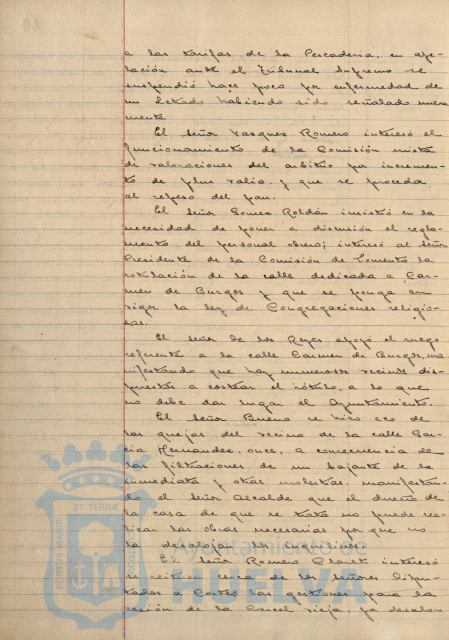 a las tarifas de la Pescaderia, en ape-
lación ante el Tribunal Supremo se
suspendió hace poco por enfermedad de
un Letrado habiendo sido señalado nueva
mente
El señor Vasques Romero interesó el
funcionamiento de la Comisión mixta
de valoraciones del arbitrio por incremen-
to de plus valia, y que se proceda
al repeso del pan.
El señor Gomez Roldán insistió en la
necesidad de poner a discusión el regla-
mento del personal obrero; interesó al señor
Presidente de la Comisión de Fomento la
rotulación de la calle dedicada a Car-
men de Burgos y que se ponga en
vigor la ley de Congregaciones religio-
sas.
El señor de los Reyes apoyó el ruego
referente a la calle Carmen de Burgos, ma
nifestando que hay numerosos vecinos dis-
puestos a costear el rótulo, a lo que
no debe dar lugar el Ayuntamiento.
El señor Bueno se hizo eco de
las quejas del vecino de la calle Gar-
cia Hernandez, once, a consecuencia de
las filtraciones de un bajante de la
inmediata y otras molestias, manifestan-
do el señor Alcalde que el dueño de
la casa de que se trata no puede rea-
lizar las obras necesarias por que no
la desalojan los inquilinos.
El señor Romero Claret interesó
se reiteren cerca de los señores Dipu-
tados a Cortes las gestiones para la
cesión de la Carcel vieja, ya desalo-
PORTUS MARIS
ET TERRAE
CUSTODIA
Ayuntamiento de
HUELVA